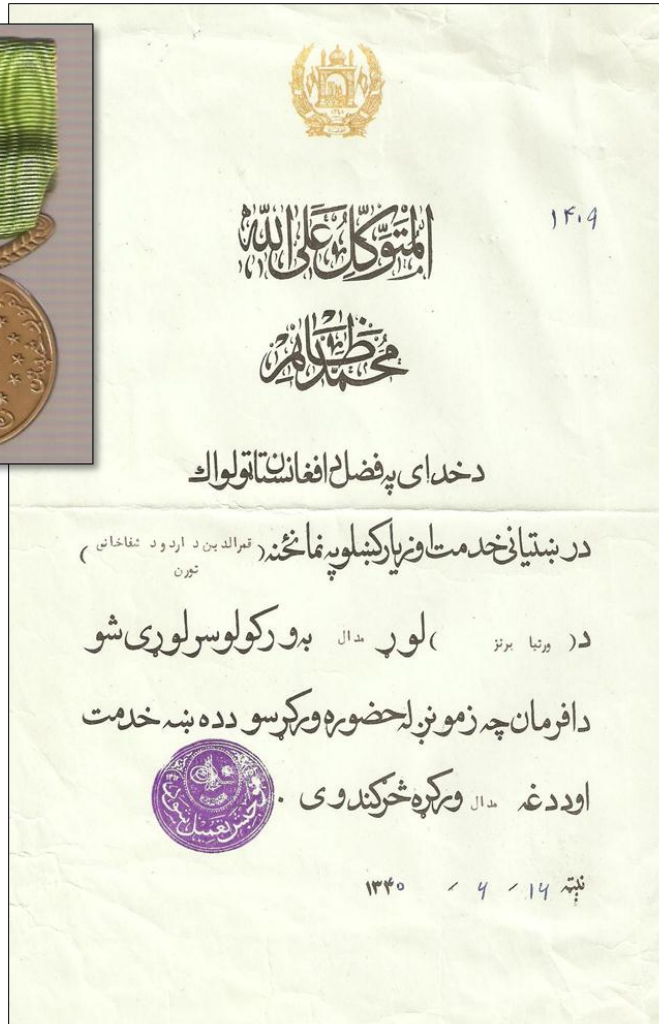 ۱۴۰۹
المتوکل علی الله
محمد ظاهر
د خدای په فضل د افغانستان ټولواک
د رښتیانی خدمت او زیار کښلو په نمانځنه ( قمرالدین د اردو د شفاخانی تورن )
د ( ورتیا برنز ) لوړ مدال په ورکولو سرلوړی شو
دا فرمان چه زمونږ له حضوره ورکړ سو د ده ښه خدمت
او د دغه مدال ورکړه څرګندوی .
نېټه ۱۶ / ۶ / ۱۳۴۰